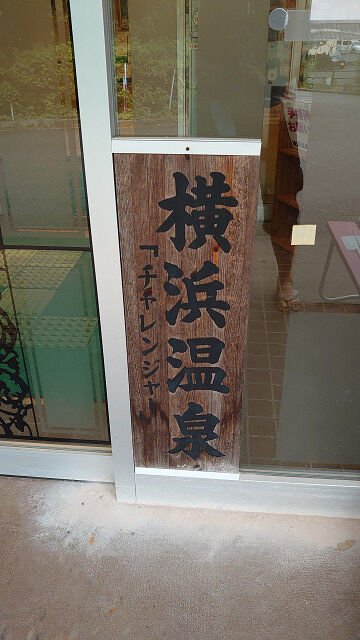 横浜温泉
「チャレンジャー」